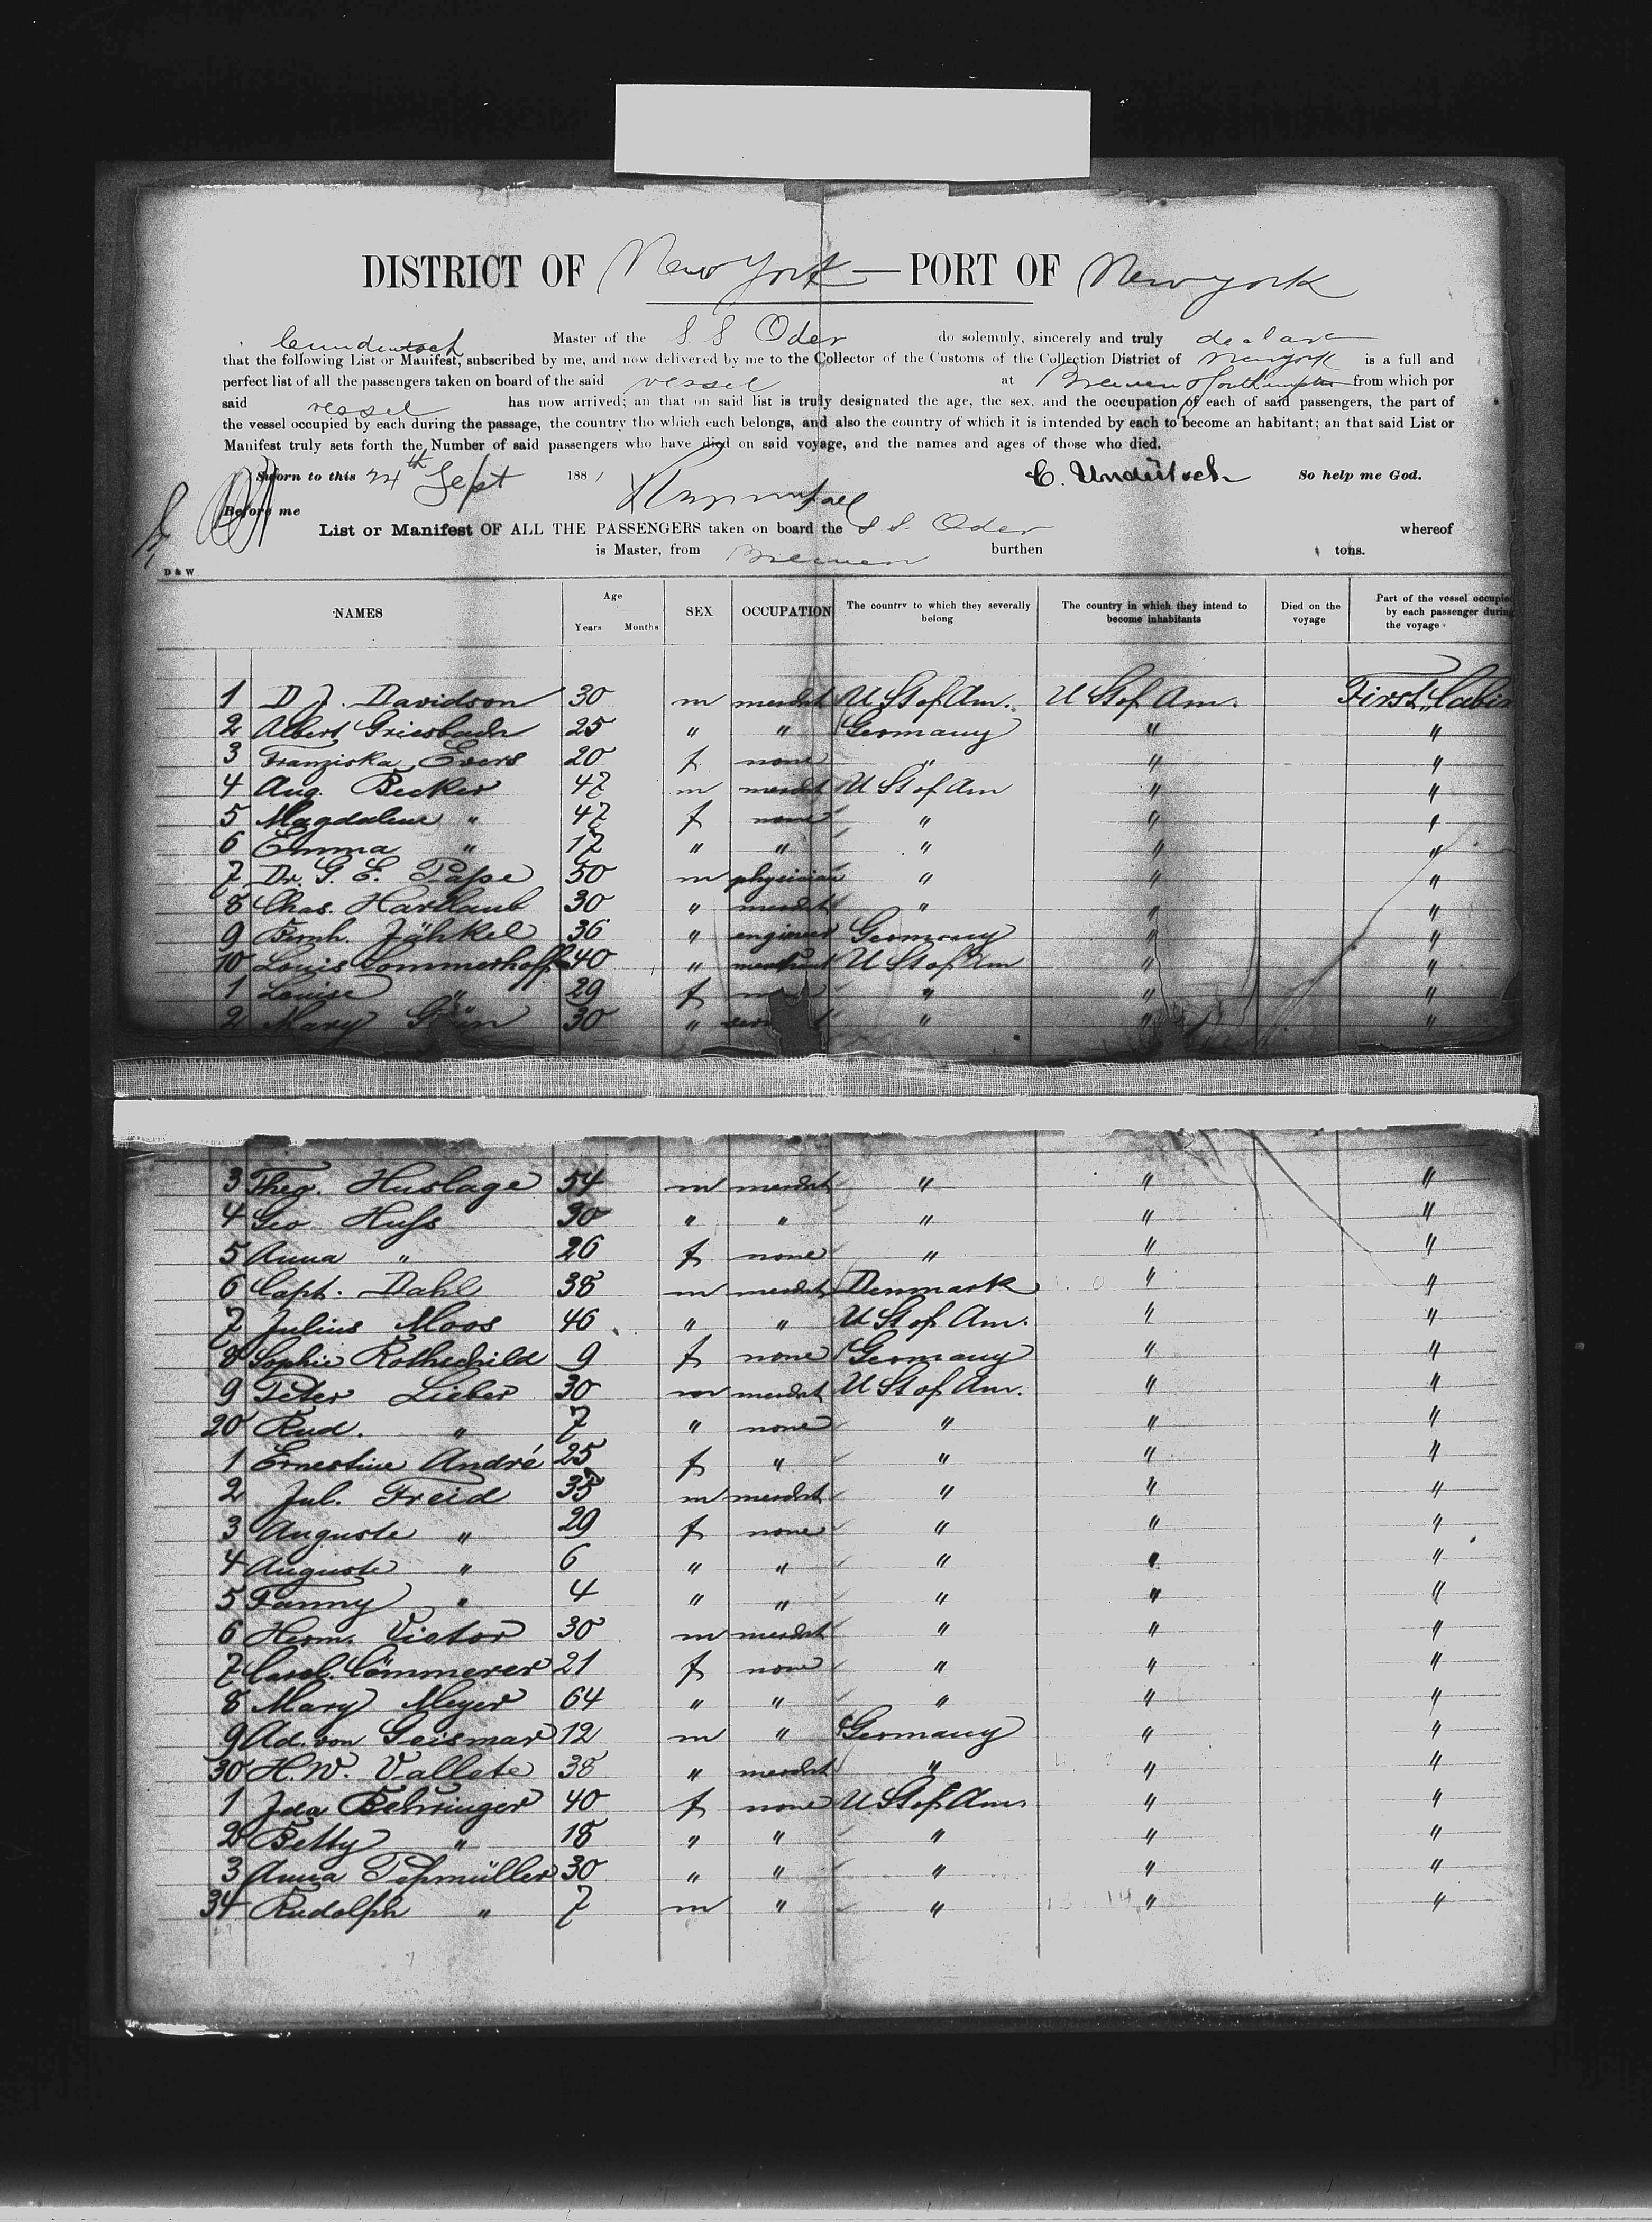 DISTRICT OF New York — PORT OF New York
Master of the S S Oder do solemnly, sincerely and truly declare
that the following List or Manifest, subscribed by me, and now delivered by me to the Collector of the Customs of the Collection District of New York is a full and
perfect list of all the passengers taken on board of the said vessel at Bremen & Southampton from which por
said vessel has now arrived; an that on said list is truly designated the age, the sex, and the occupation of each of said passengers, the part of
the vessel occupied by each during the passage, the country tho which each belongs, and also the country of which it is intended by each to become an habitant; an that said List or
Manifest truly sets forth the Number of said passengers who have died on said voyage, and the names and ages of those who died.
Sworn to this 24th Sept 1881 C. Undütsch So help me God.
Before me
List or Manifest OF ALL THE PASSENGERS taken on board the S S. Oder whereof
is Master, from Bremen burthen tons.
D & W
NAMES Age Years Months SEX OCCUPATION The country to which they severally belong The country in which they intend to become inhabitants Died on the voyage Part of the vessel occupied by each passenger during the voyage
1 D J. Davidson 30 m mercht U St of Am. U St of Am. First Cabin
2 Albert Griesbach 25 " " Germany " "
3 Franziska Evers 20 f none " " "
4 Aug. Becker 47 m mercht U St of Am " "
5 Magdalene " 47 f none " " "
6 Emma " 17 " " " " "
7 Dr. G. E. Pape 50 m physician " " "
8 Chas. Hartlaub 30 " mercht " " "
9 Bernh. Jähkel 36 " engineer Germany " "
10 Louis Sommerhoff 40 " merchant U St of Am " "
1 Louise " 29 f " " "
2 Mary Grün 30 " " " "
3 Theo. Huslage 54 m mercht " " "
4 Geo Huſs 30 " " " " "
5 Anna " 26 f none " " "
6 Capt. Dahl 38 m mercht Denmark " "
7 Julius Moos 46 " " U St of Am. " "
8 Sophie Rothschild 9 f none Germany " "
9 Peter Lieber 30 m mercht U St of Am. " "
20 Rud. " 7 " none " " "
1 Ernestine André 25 f " " " "
2 Jul. Freid 35 m mercht " " "
3 Auguste " 29 f none " " "
4 Auguste " 6 " " " " "
5 Fanny " 4 " " " " "
6 Herm. Victor 30 m mercht " " "
7 Carol. Cömmerer 21 f none " " "
8 Mary Meyer 64 " " " " "
9 Ad. von Geismar 12 m " Germany " "
30 H. W. Vallete 38 " mercht " " "
1 Ida Behringer 40 f none U St of Am. " "
2 Betty " 18 " " " " "
3 Anna 30 " " " " "
34 Rudolph " 7 m " " " "